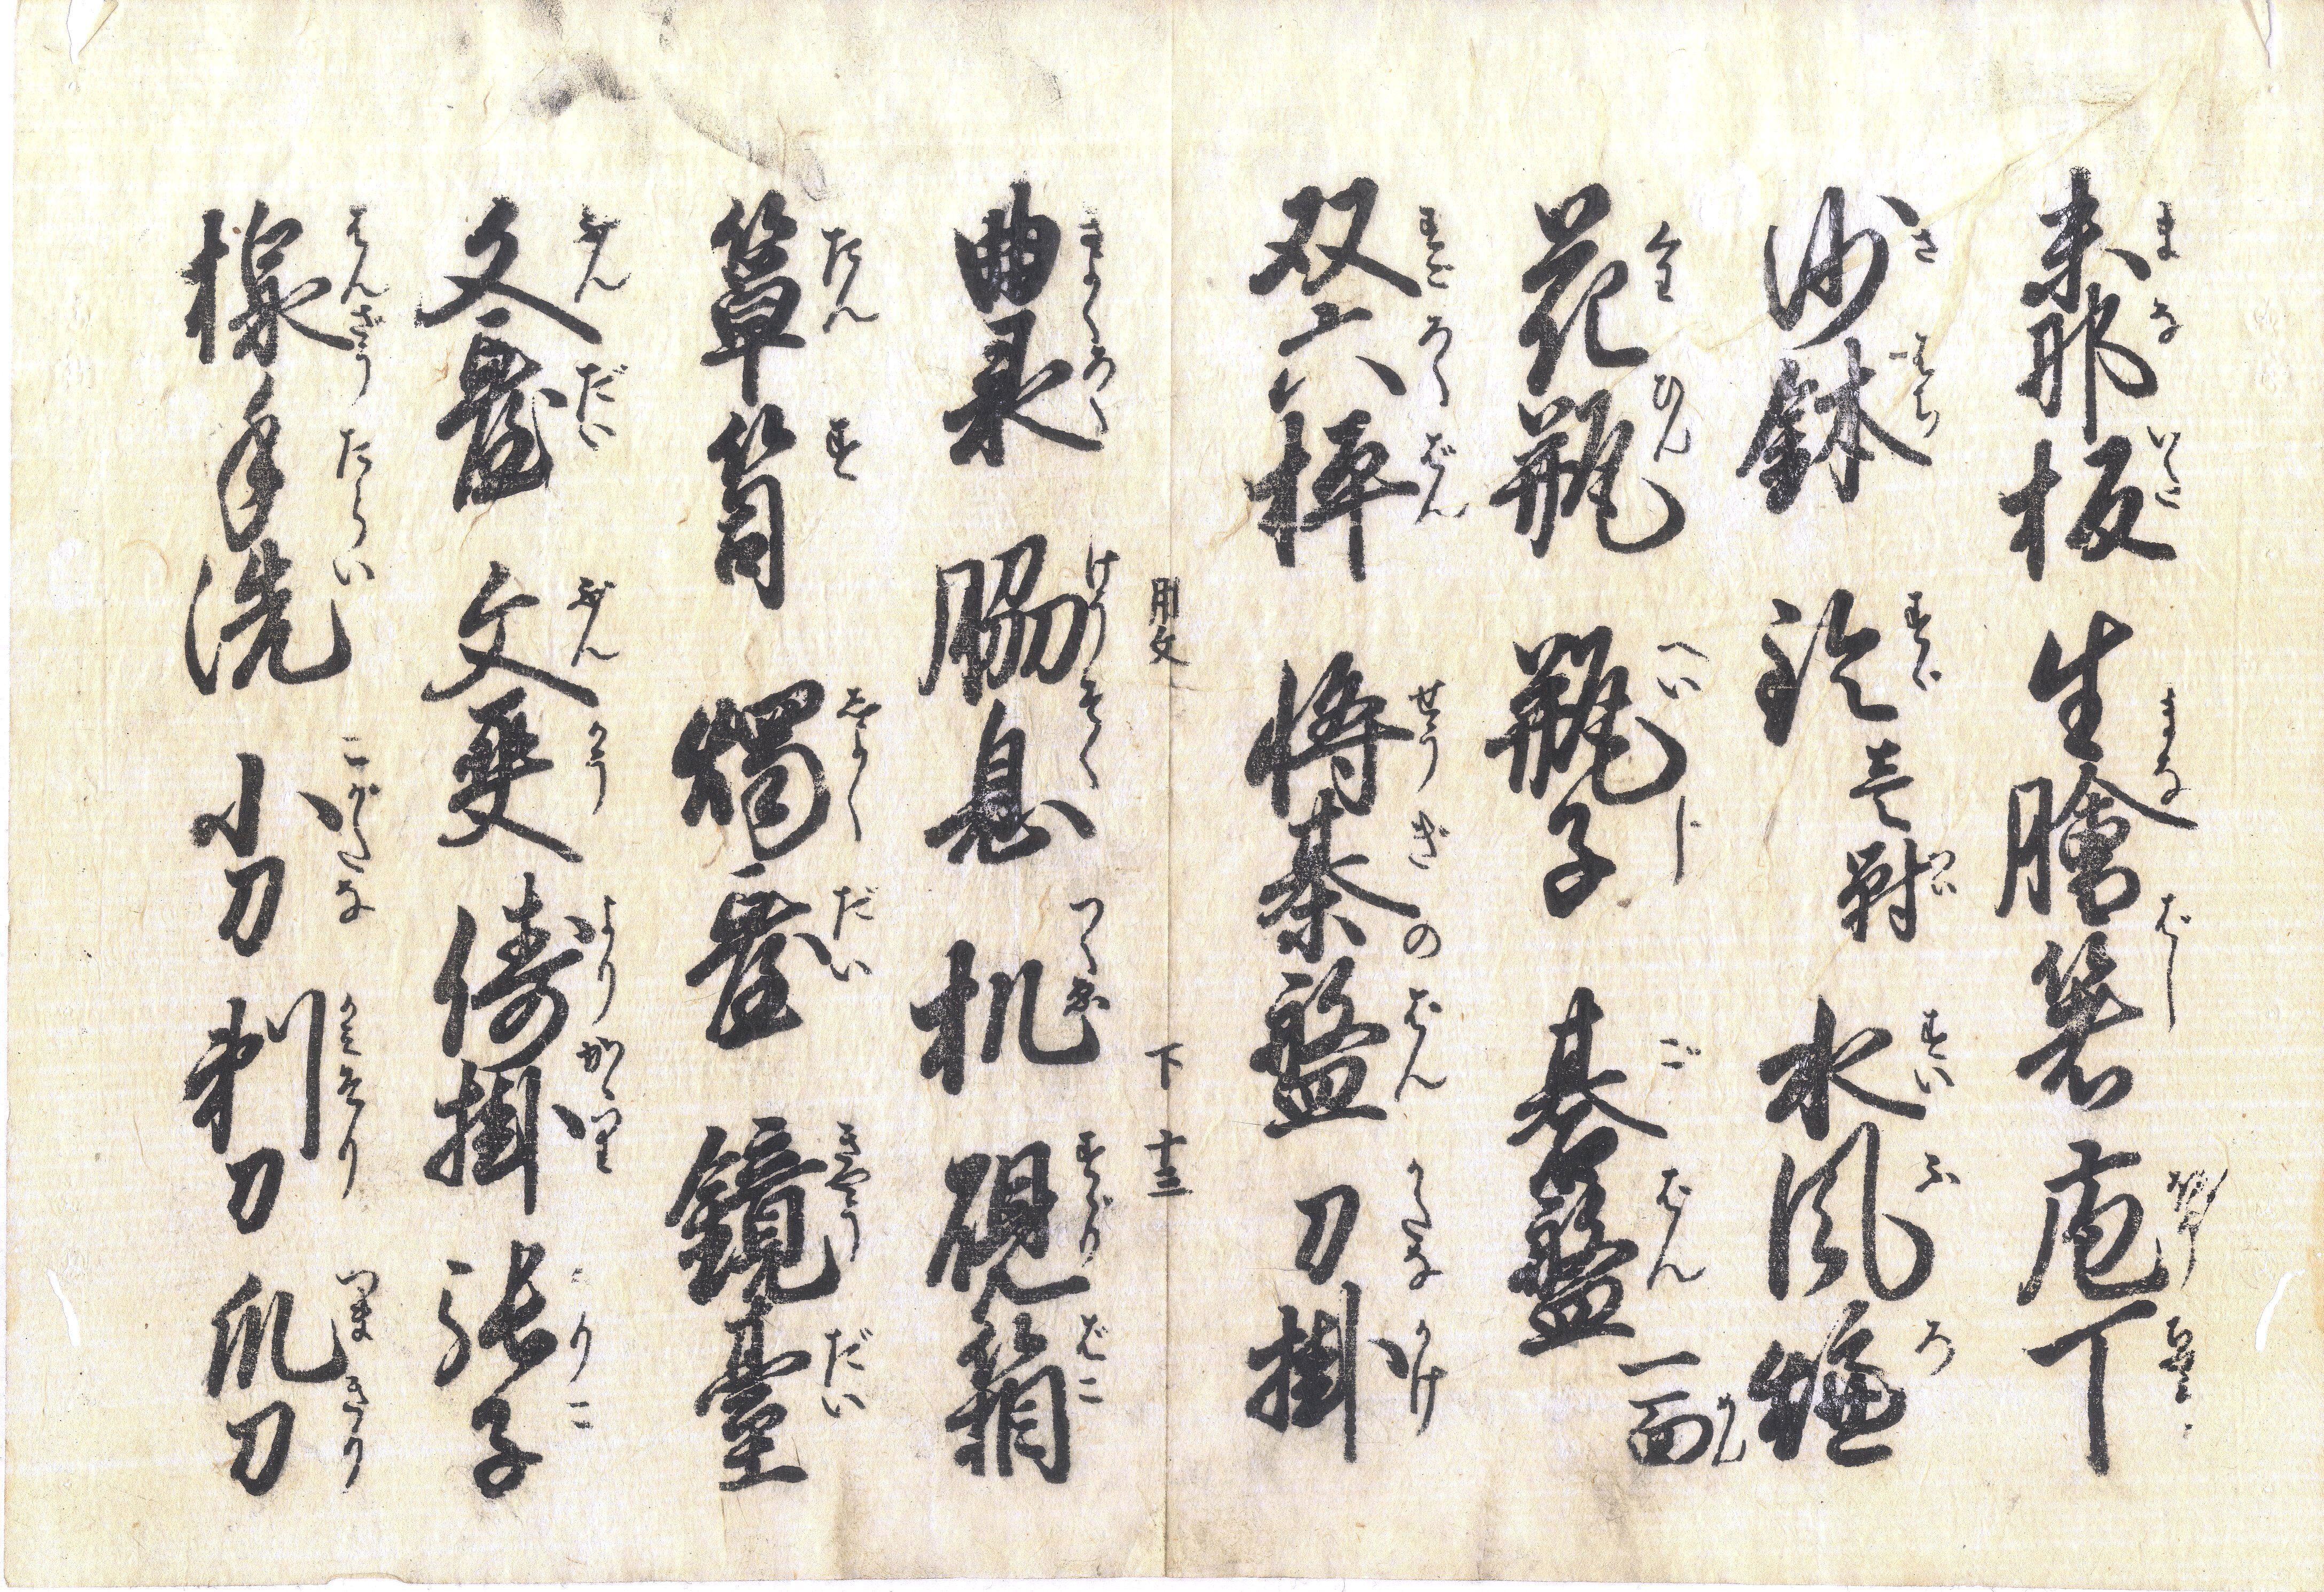 末那板 生膾箸 庖丁
まな いた まな ばし
沙鉢 鈴壱対 水風炉
さ はち すゞ つい すい ふ ろ
花瓶 瓶子 碁盤一面
くわ ひん へい じ ご ばん めん
双六枰 将棊盤 刀掛
すごろくばん せうぎのばん かたなかけ
用文 下 十三
曲录 脇息 机 硯箱
きよくろく けうそく つくゑ すゞりばこ
箪笥 燭臺 鏡臺
たんす しよくだい きやうだい
文臺 文匣 倚掛 張子
ぶんだい ぶんかう よりかゝり はりこ
楾手洗 小刀 剃刀 爪刀
はんざうたらい こがたな かみそり つまきり